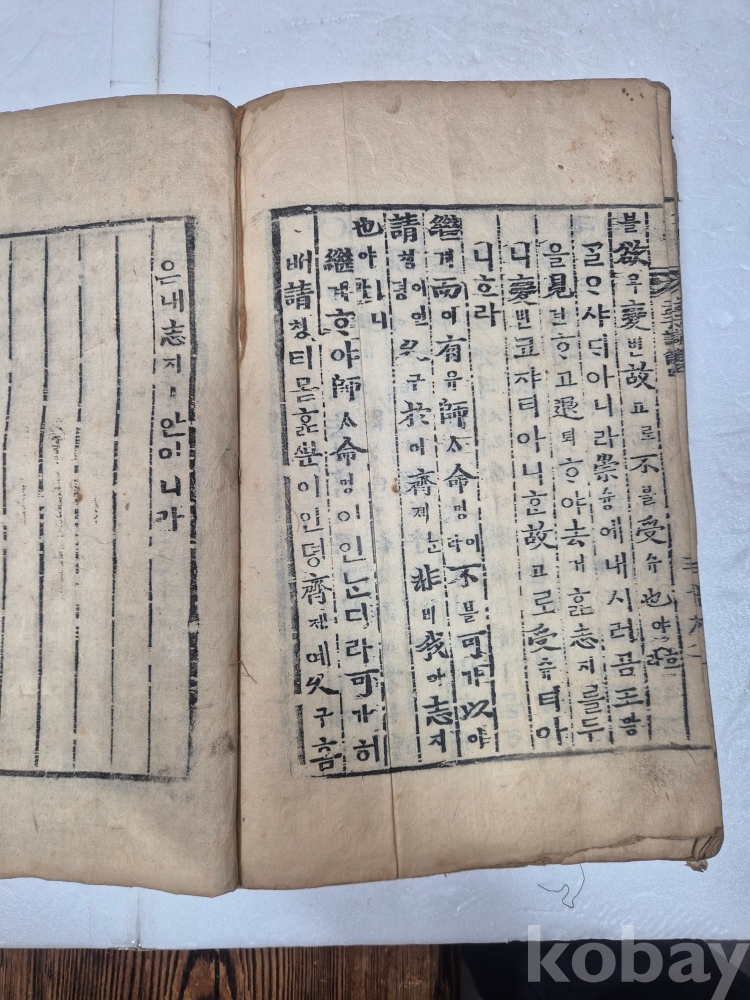 블欲욕變변故고로不블受슈也야
ᄀᆞᆯᄋᆞ샤ᄃᆡ아니라崇슝에내시러곰王왕
을見견ᄒᆞ고退퇴ᄒᆞ야去거ᄒᆞᆯ志지를두
니變변코쟈티아니ᄒᆞᆫ故고로受슈티아
니ᄒᆞ라
繼계而이有유師ᄉᆞ命명이라不블可가以이
請쳥이언뎡久구於어齊졔ᄂᆞᆫ非비我아志지
也야ㅣ니라
繼계ᄒᆞ야師ᄉᆞ命명이인ᄂᆞᆫ디라可가히
ᄡᅥ請쳥티몯ᄒᆞᆯᄲᅮᆫ이언뎡齊졔예久구홈
은내志지ㅣ안이니라
kobay